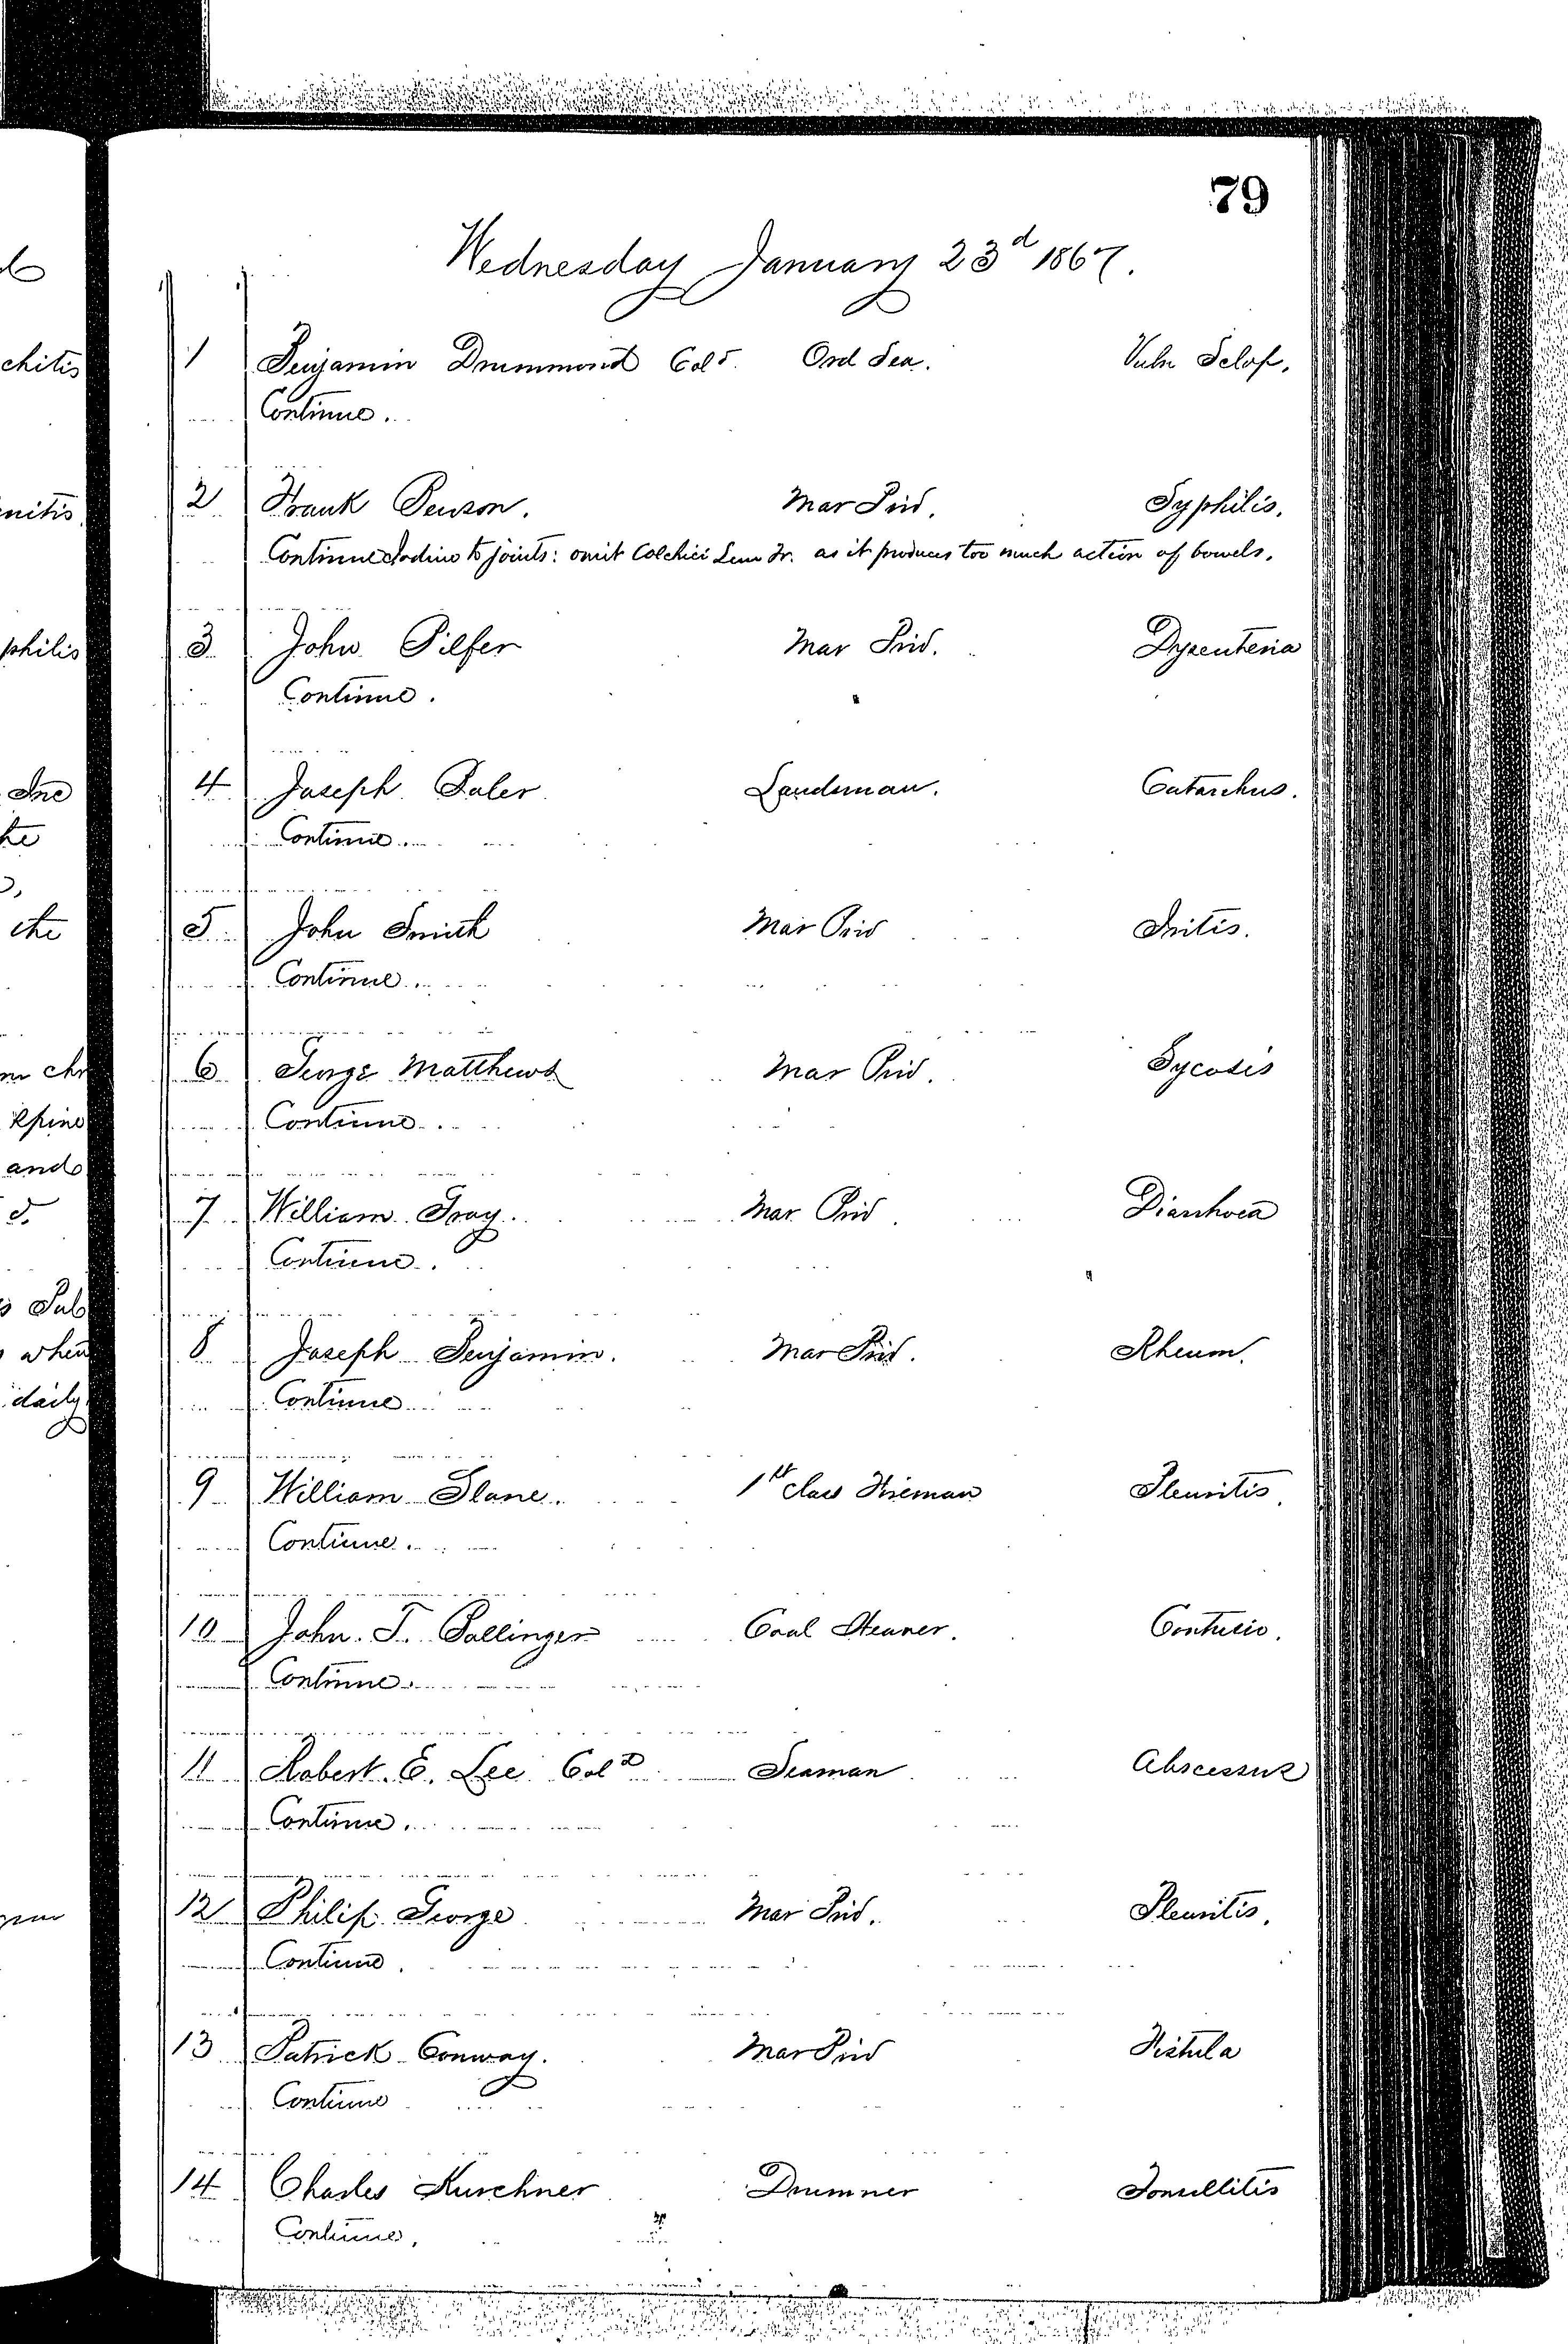 79
Wednesday January 23d 1867.
1 Benjamin Drummond Cold. Ord Sea. Vuln Sclop.
Continue.
2 Frank Benson. Mar Priv. Syphilis.
Continue Iodine to joints: omit Colchici Sem Tr. as it produces too much action of bowels.
3 John Pilfer Mar Priv. Dysenteria
Continue.
4 Joseph Baler Landsman. Catarrhus.
Continue.
5 John Smith Mar Priv Iritis.
Continue.
6 George Matthews Mar Priv. Sycosis
Continue.
7 William Gray. Mar Priv. Diarrhoea
Continue.
8 Joseph Benjamin. Mar Priv. Rheum.
Continue
9 William Slane. 1st Class Fireman Pleuritis.
Continue.
10 John. T. Bollinger Coal Heaver. Contusio.
Continue.
11 Robert. E. Lee Cold Seaman Abscessus
Continue.
12 Philip George Mar Priv. Pleuritis.
Continue.
13 Patrick Conway. Mar Priv Fistula
Continue
14 Charles Kurchner Drummer Tonsillitis
Continue.
chitis
nitis
philis
Inc
the
the
m chr
spine
and
d.
s Sub
when
daily